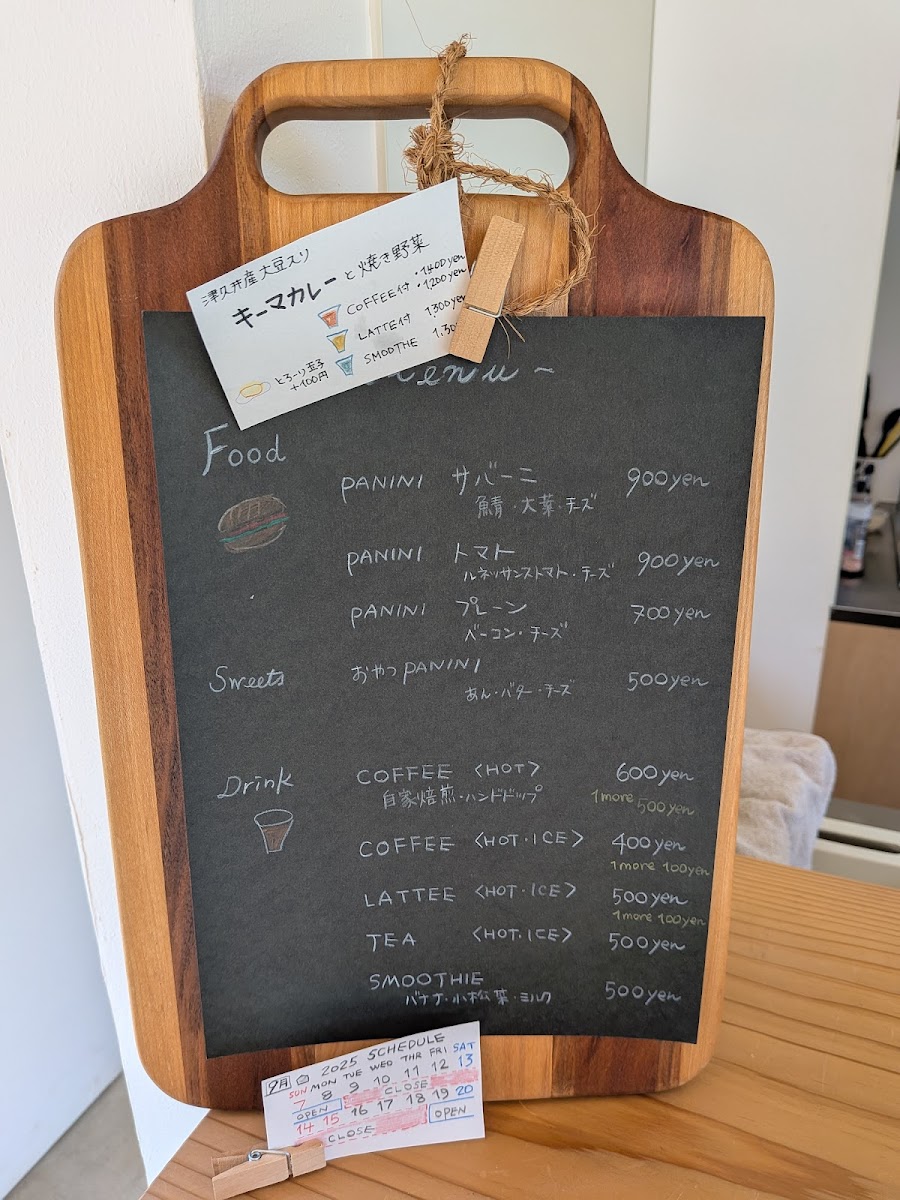 津久井産大豆入り
キーマカレーと焼き野菜
・1400yen
COFFEE付 ・1200yen
LATTE付 1300yen
SMOOTHE 1,30
とろーり玉子
+100円
enu ~
Food
PANINI サバーニ 900yen
鯖・大葉・チーズ
PANINI トマト 900yen
ルネッサンストマト・チーズ
PANINI プレーン 700yen
ベーコン・チーズ
Sweets おやつPANINI 500yen
あん・バター・チーズ
Drink COFFEE <HOT> 600yen
自家焙煎・ハンドドップ 1more 500yen
COFFEE <HOT・ICE> 400yen
1more 100yen
LATTEE <HOT・ICE> 500yen
1more 100yen
TEA <HOT・ICE> 500yen
SMOOTHIE
バナナ・小松菜・ミルク 500yen
9月 2025 SCHEDULE
SUN MON TUE WED THR FRI SAT
7 8 9 10 11 12 13
OPEN CLOSE
14 15 16 17 18 19 20
CLOSE OPEN